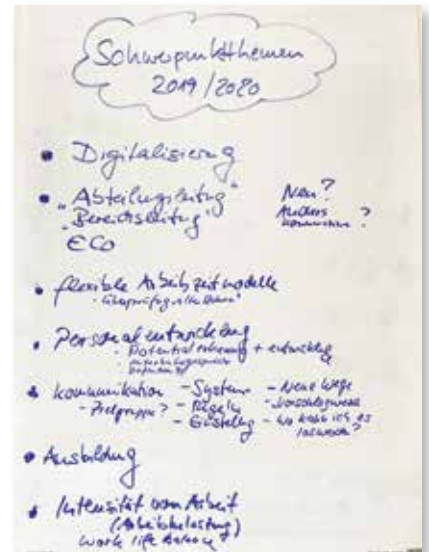 Schwerpunktthemen
2019/2020
• Digitalisierung
• "Abteilungsleitung" Neu?
"Bereichsleitung" Anders ?
ECo
• flexible Arbeitszeitmodelle
• Personalentwicklung
- Potentialerkennung + entwicklung
• Kommunikation - System - Neue Wege
- Zielgruppe? - Regeln - Vorschlagswesen
- Einstellung - Wo kann ich es
loswerden?
• Ausbildung
• Intensität von Arbeit
(Arbeitsbelastung)
work life balance